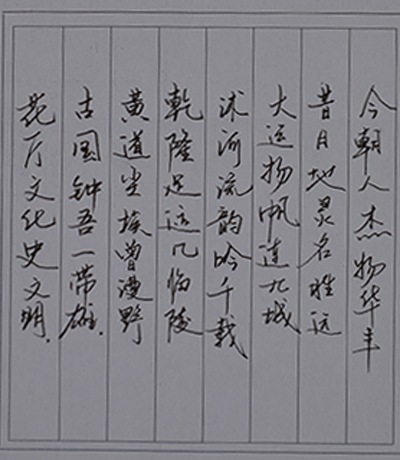 花厅文化史文明.
古国钟吾一带雄.
黄道尘埃曾漫野
乾隆足迹几临陵
沭河流韵吟千载
大运扬帆连九城
昔日地灵名雅远
今朝人杰物华丰